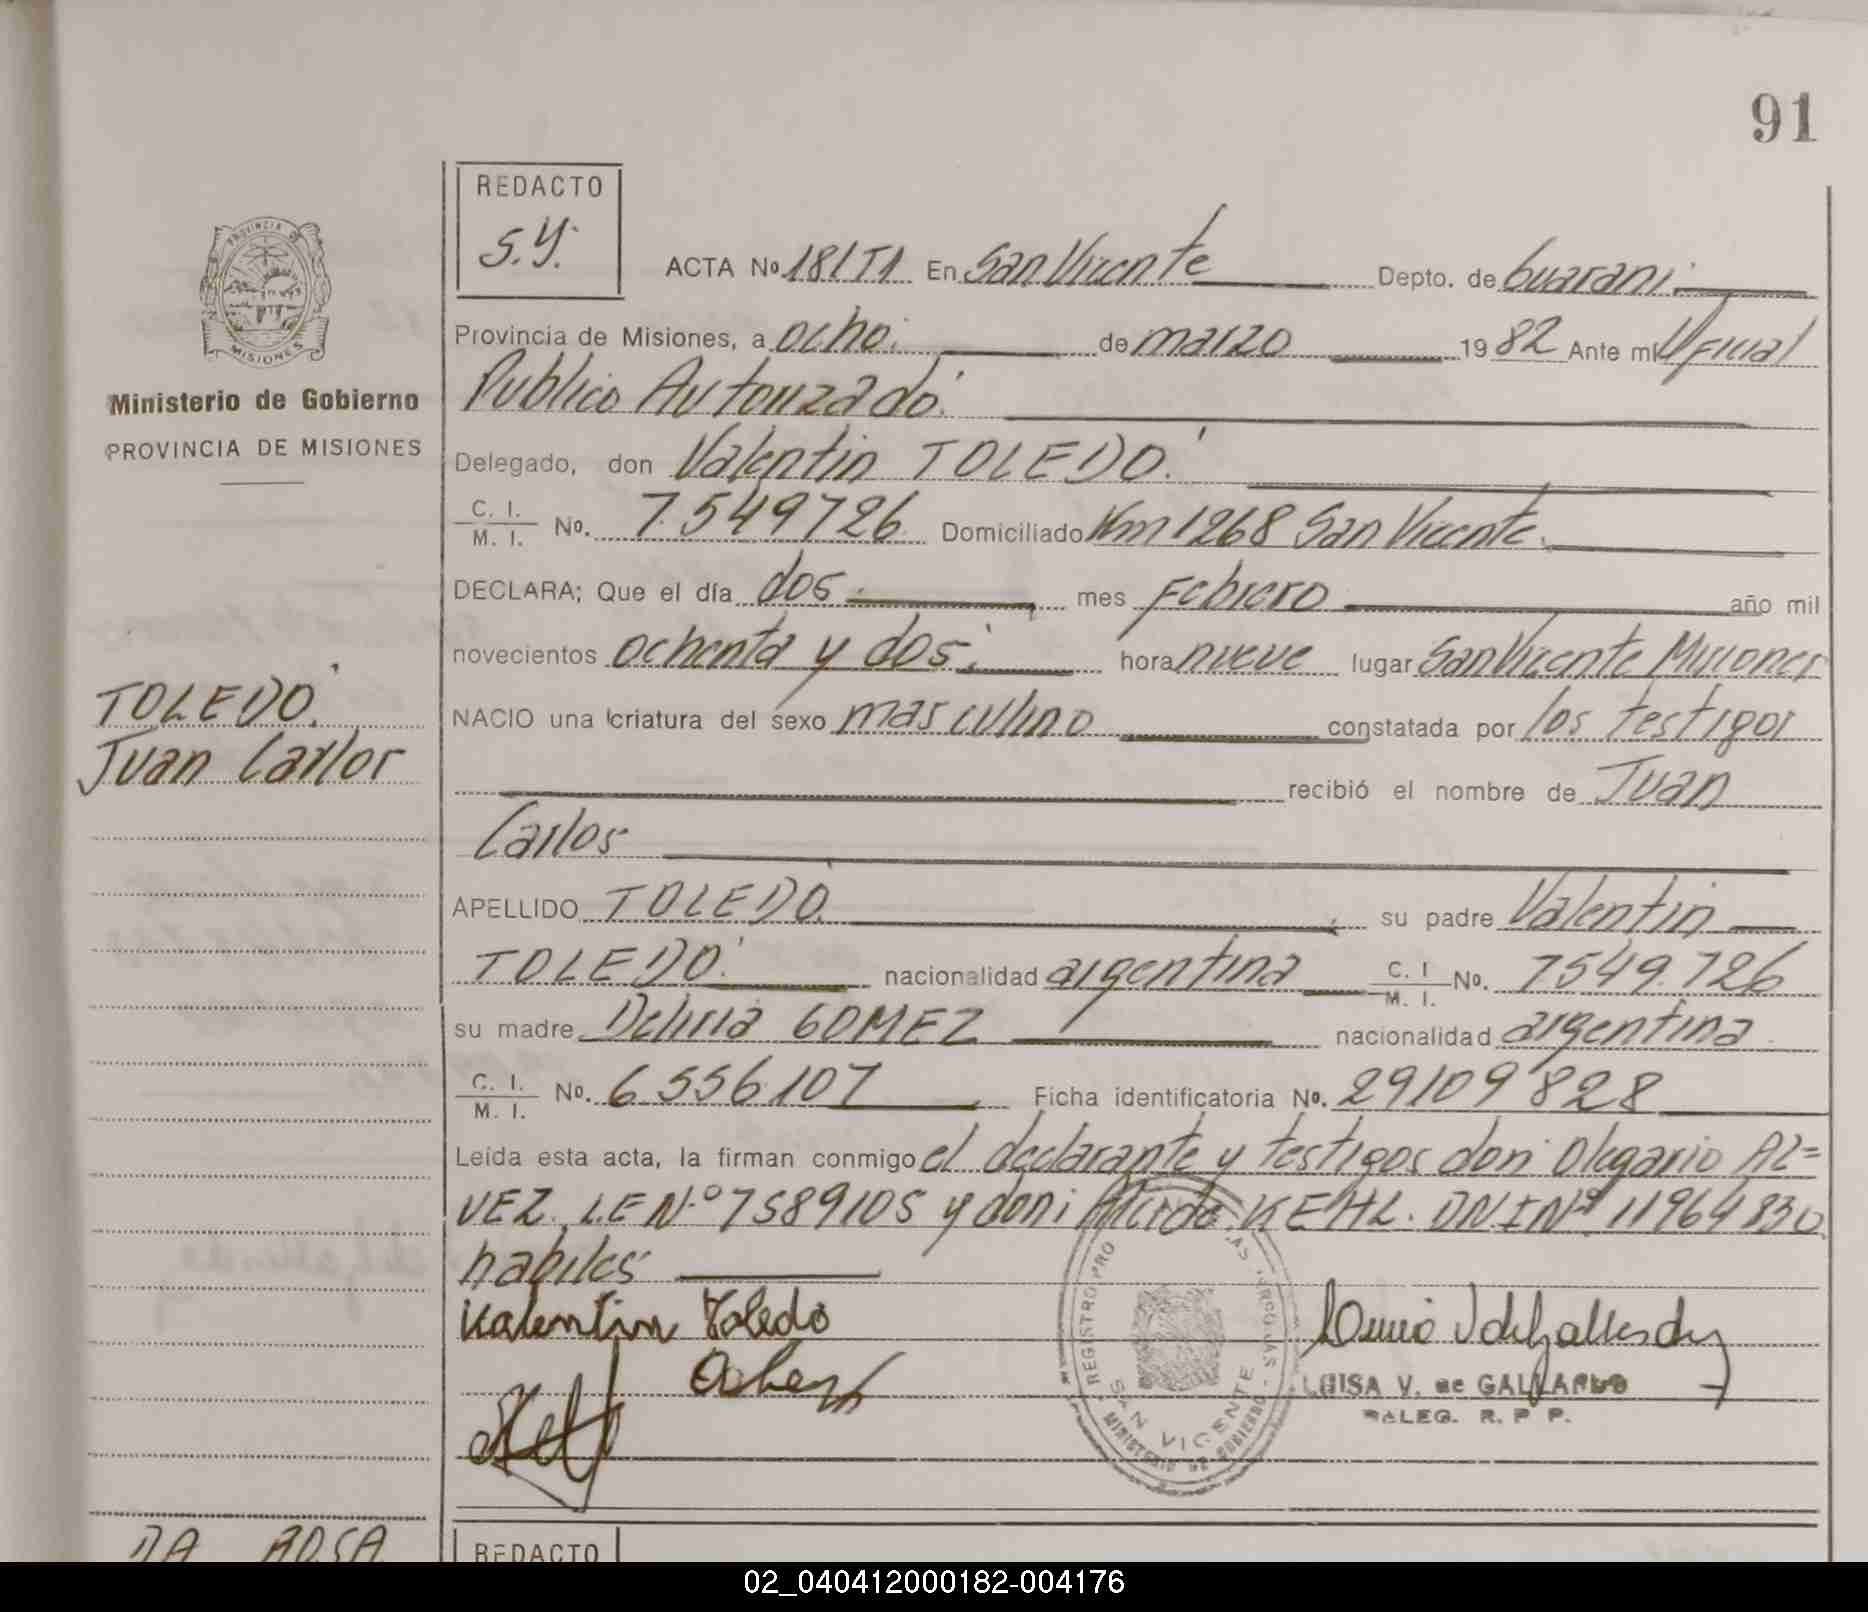 91
REDACTO
S.Y.
PROVINCIA DE
MISIONES
Ministerio de Gobierno
PROVINCIA DE MISIONES
TOLEDO.
Juan Carlos
ACTA No 181T1 En San Vicente Depto. de Guarani
Provincia de Misiones, a ocho. de marzo 1982 Ante mi Oficial
Publico Autorizado.
Delegado, don Valentin TOLEDO.
C. I.
M. I. No. 7.549726 Domiciliado Km 1268 San Vicente.
DECLARA; Que el día dos mes Febrero año mil
novecientos ochenta y dos. hora nueve lugar San Vicente Misiones
NACIO una criatura del sexo masculino constatada por los testigos
recibió el nombre de Juan
Carlos
APELLIDO TOLEDO su padre Valentin
TOLEDO. nacionalidad argentina C. I M. I. No. 7549.726
su madre GOMEZ nacionalidad argentina
C. I.
M. I. No. 6.556.107 Ficha identificatoria No. 29109828
Leída esta acta, la firman conmigo el declarante y testigos don Olegario AL=
VEZ. L.E Nº 7589105 y don Alcido KEHL. DNI Nº 11964830
habiles
Valentin Toledo
LUISA V. de GALLARDO
DELEG. R. P P.
SAN VICENTE
MINISTERIO DE GOBIERNO
DA ROSA
REDACTO
02_040412000182-004176